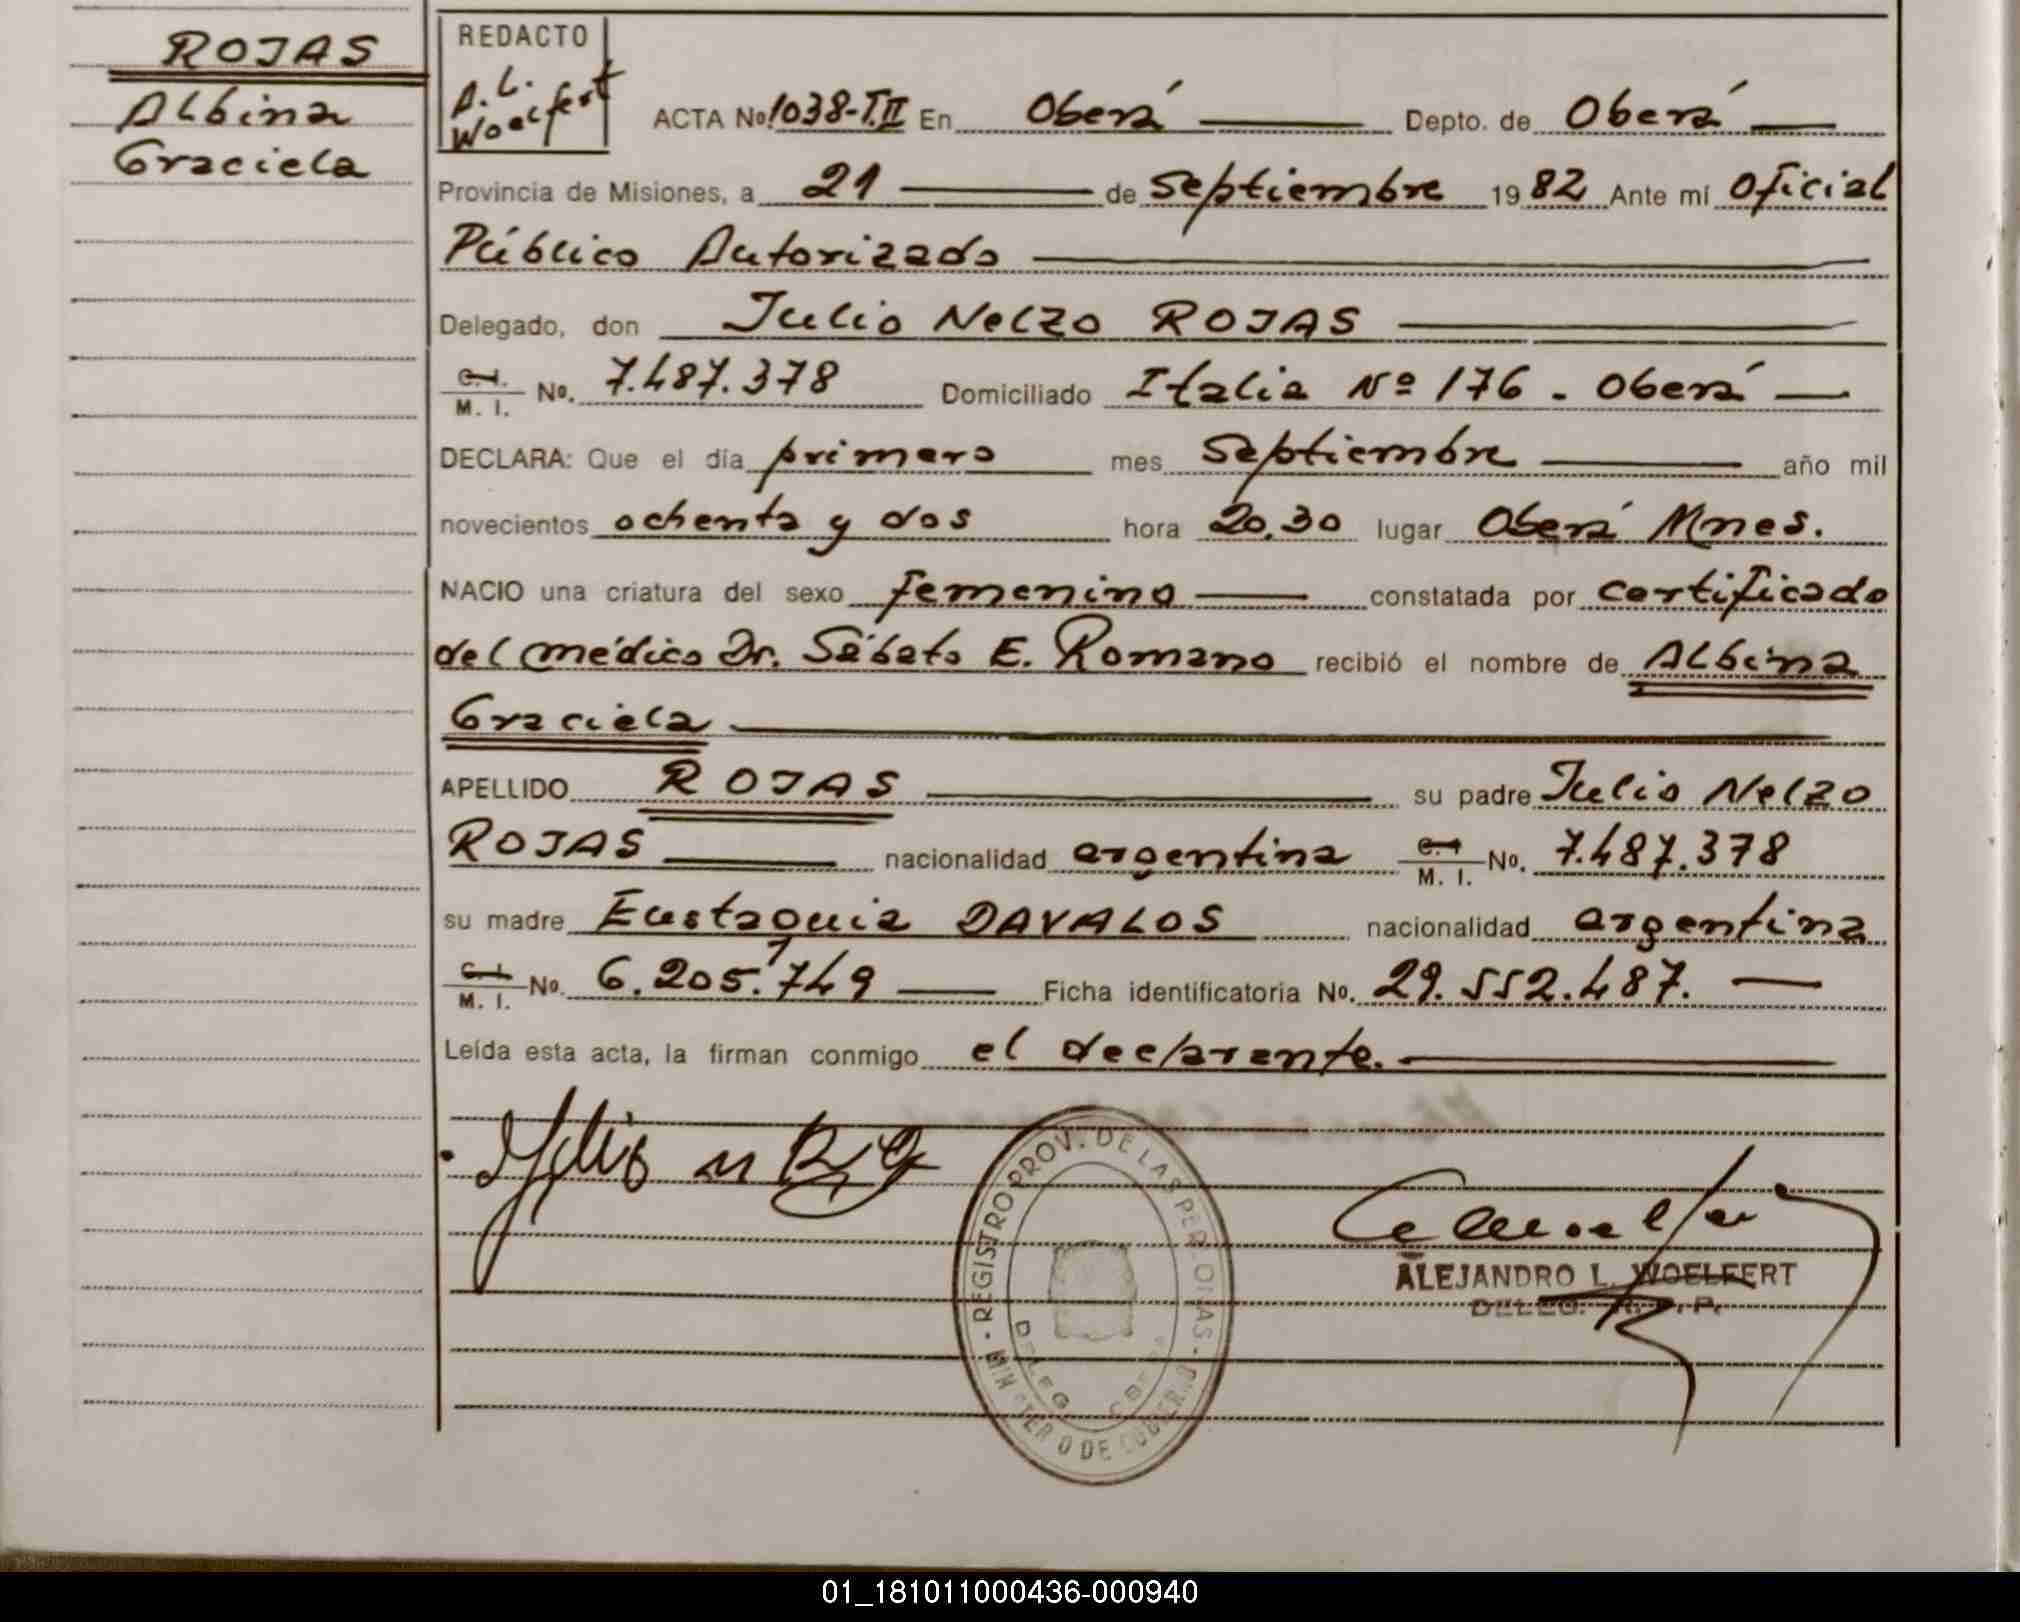 ROJAS
Albina
Graciela
REDACTO
A. L.
Woelfert
ACTA No. 1038-T.II En Oberá Depto. de Oberá
Provincia de Misiones, a 21 de Septiembre 1982 Ante mí Oficial
Público Autorizado
Delegado, don Julio Nelzo ROJAS
C.I.
M. I. No. 7.487.378 Domiciliado Italia Nº 176 - Oberá
DECLARA: Que el día primero mes Septiembre año mil
novecientos ochenta y dos hora 20,30 lugar Oberá Mnes.
NACIO una criatura del sexo femenino constatada por certificado
del médico Dr. Sábato E. Romano recibió el nombre de Albina
Graciela
APELLIDO ROJAS su padre Julio Nelzo
ROJAS nacionalidad argentina C.I. M. I. No. 7.487.378
su madre Eustaquia DAVALOS nacionalidad argentina
C.I. M. I. No. 6.205.749 Ficha identificatoria No. 29.552.487.
Leída esta acta, la firman conmigo el declarante.
REGISTRO PROV. DE LAS PERSONAS - MINISTERIO DE GOBIERNO
DELEG. OBERA
ALEJANDRO L. WOELFERT
DELEG. R. P. P.
01_181011000436-000940